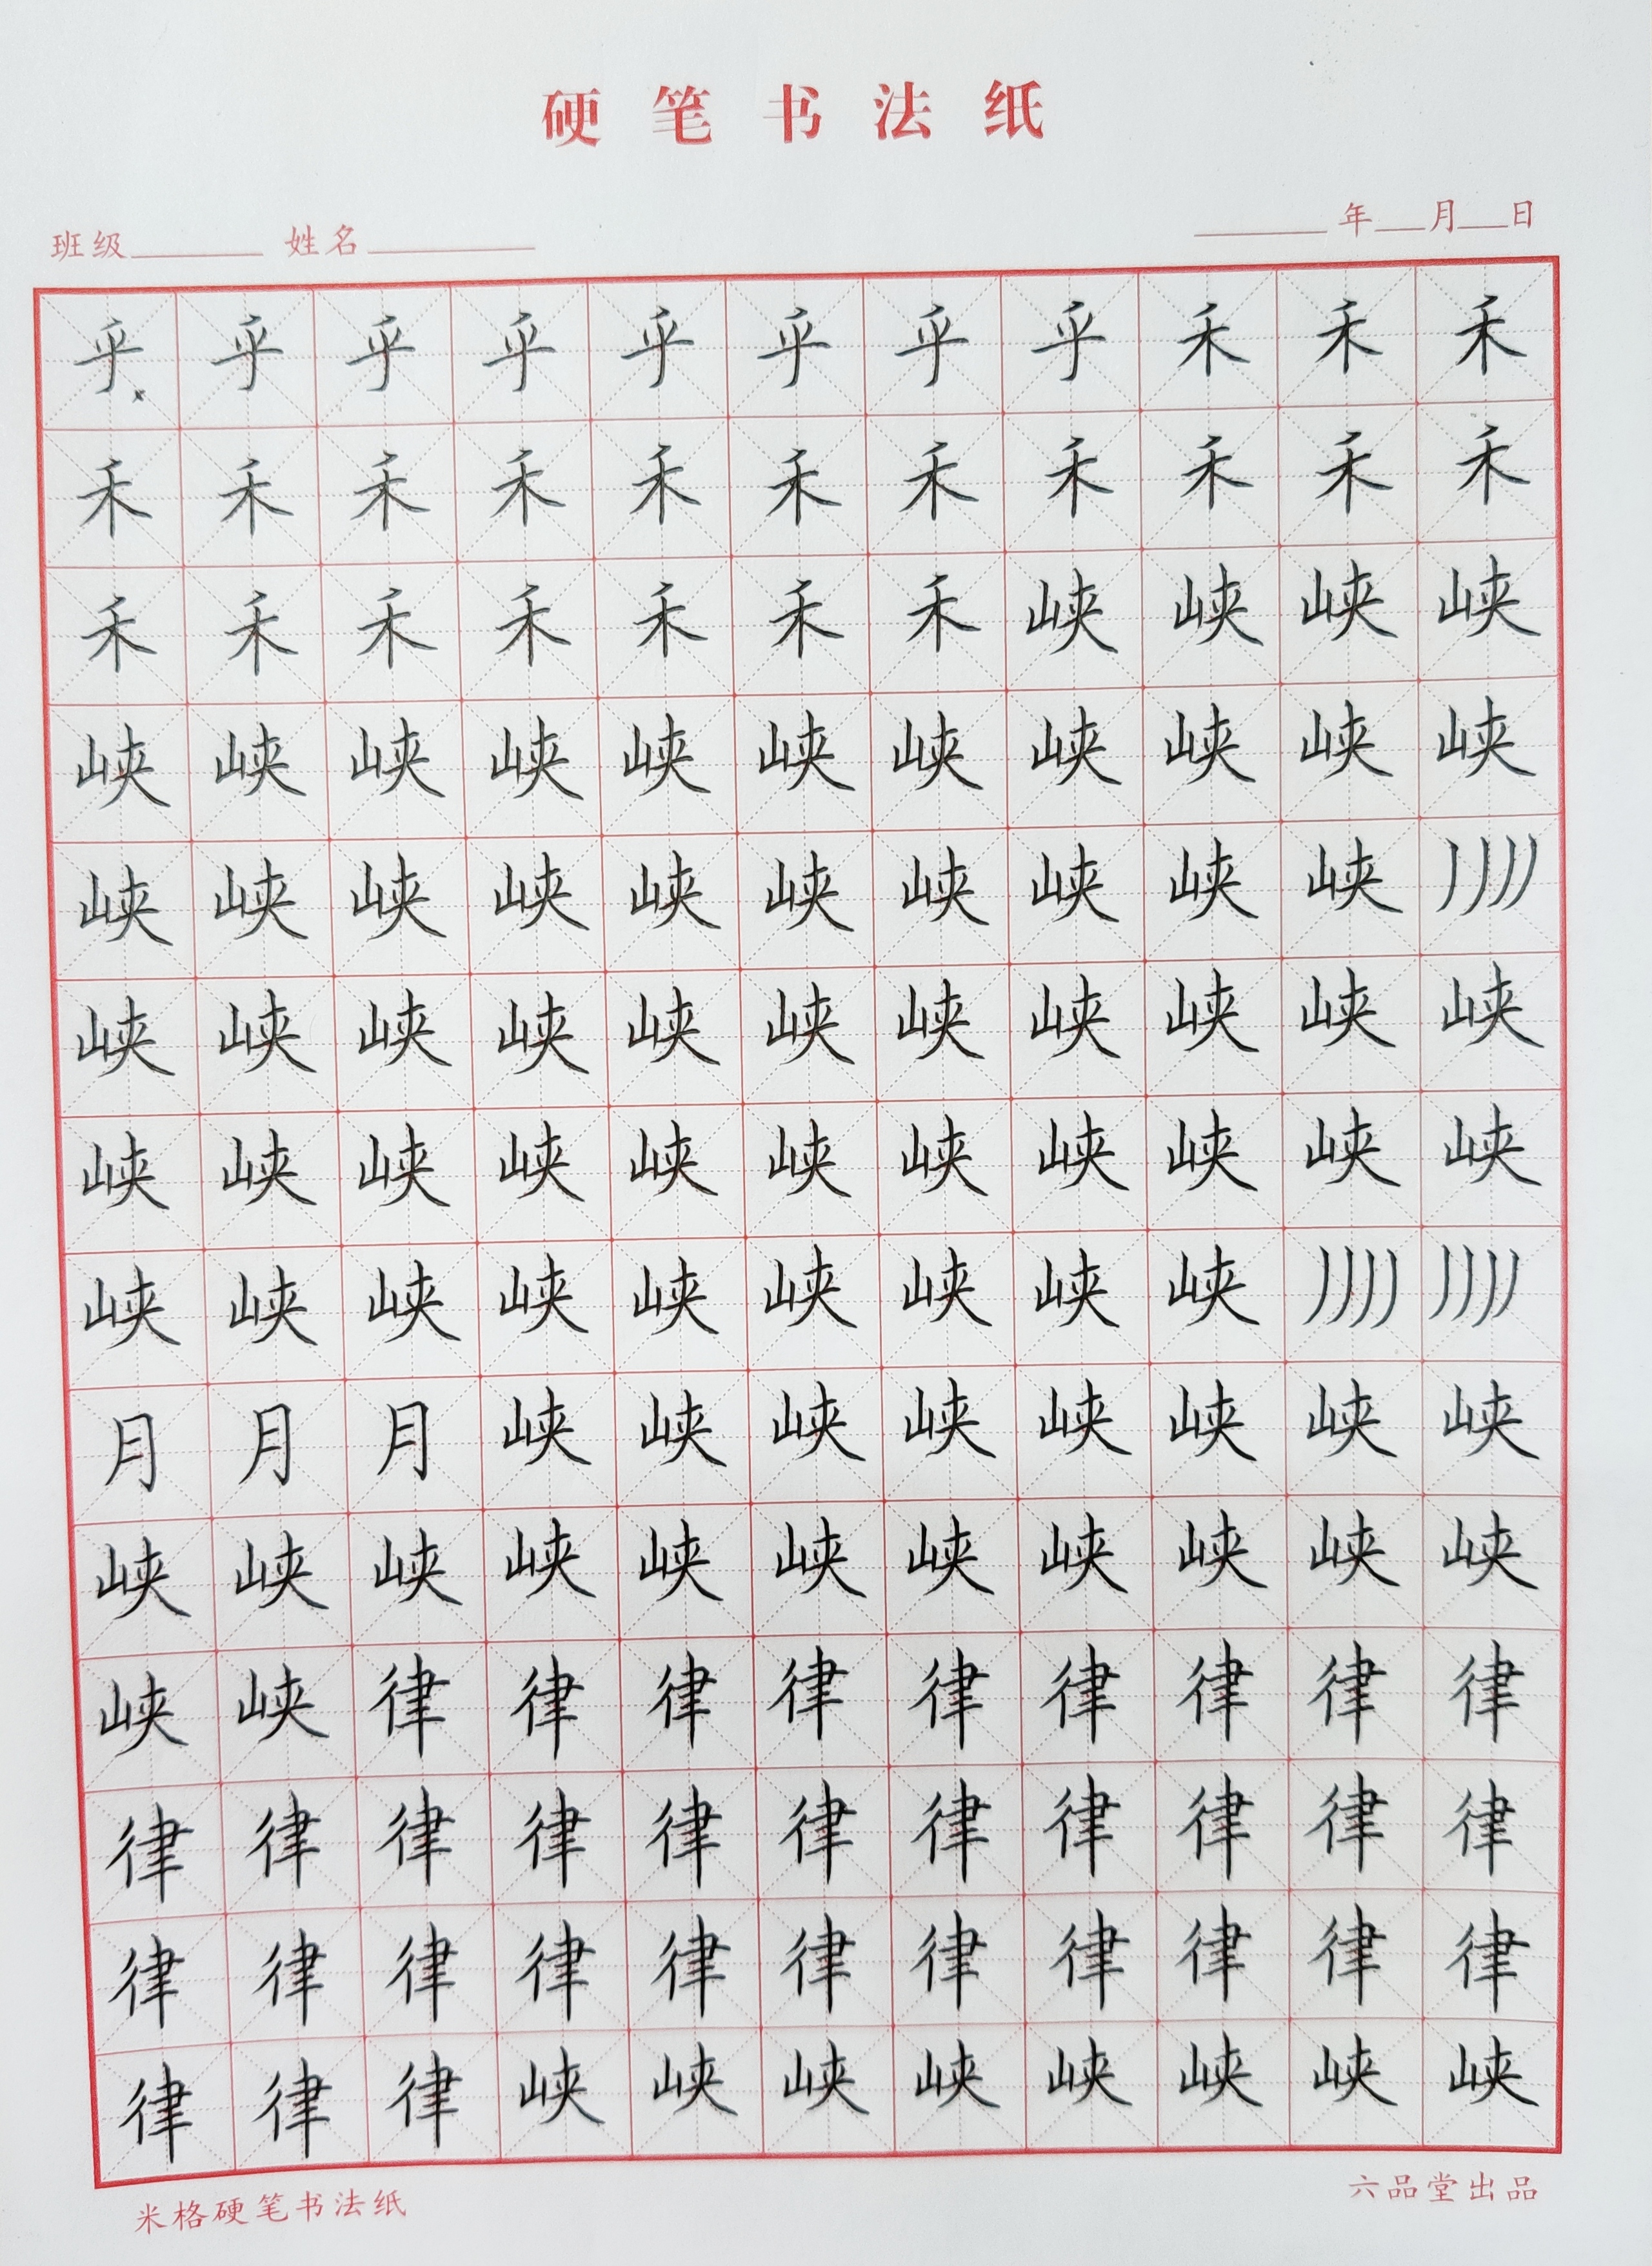 硬笔书法纸
班级 姓名 年 月 日
乎乎乎乎乎乎乎乎禾禾禾
禾禾禾禾禾禾禾禾禾禾禾
禾禾禾禾禾禾禾峡峡峡峡
峡峡峡峡峡峡峡峡峡峡峡
峡峡峡峡峡峡峡峡峡峡
峡峡峡峡峡峡峡峡峡峡峡
峡峡峡峡峡峡峡峡峡峡峡
峡峡峡峡峡峡峡峡峡
月月月峡峡峡峡峡峡峡峡
峡峡峡峡峡峡峡峡峡峡峡
峡峡律律律律律律律律律
律律律律律律律律律律律
律律律律律律律律律律律
律律律峡峡峡峡峡峡峡峡
米格硬笔书法纸 六品堂出品